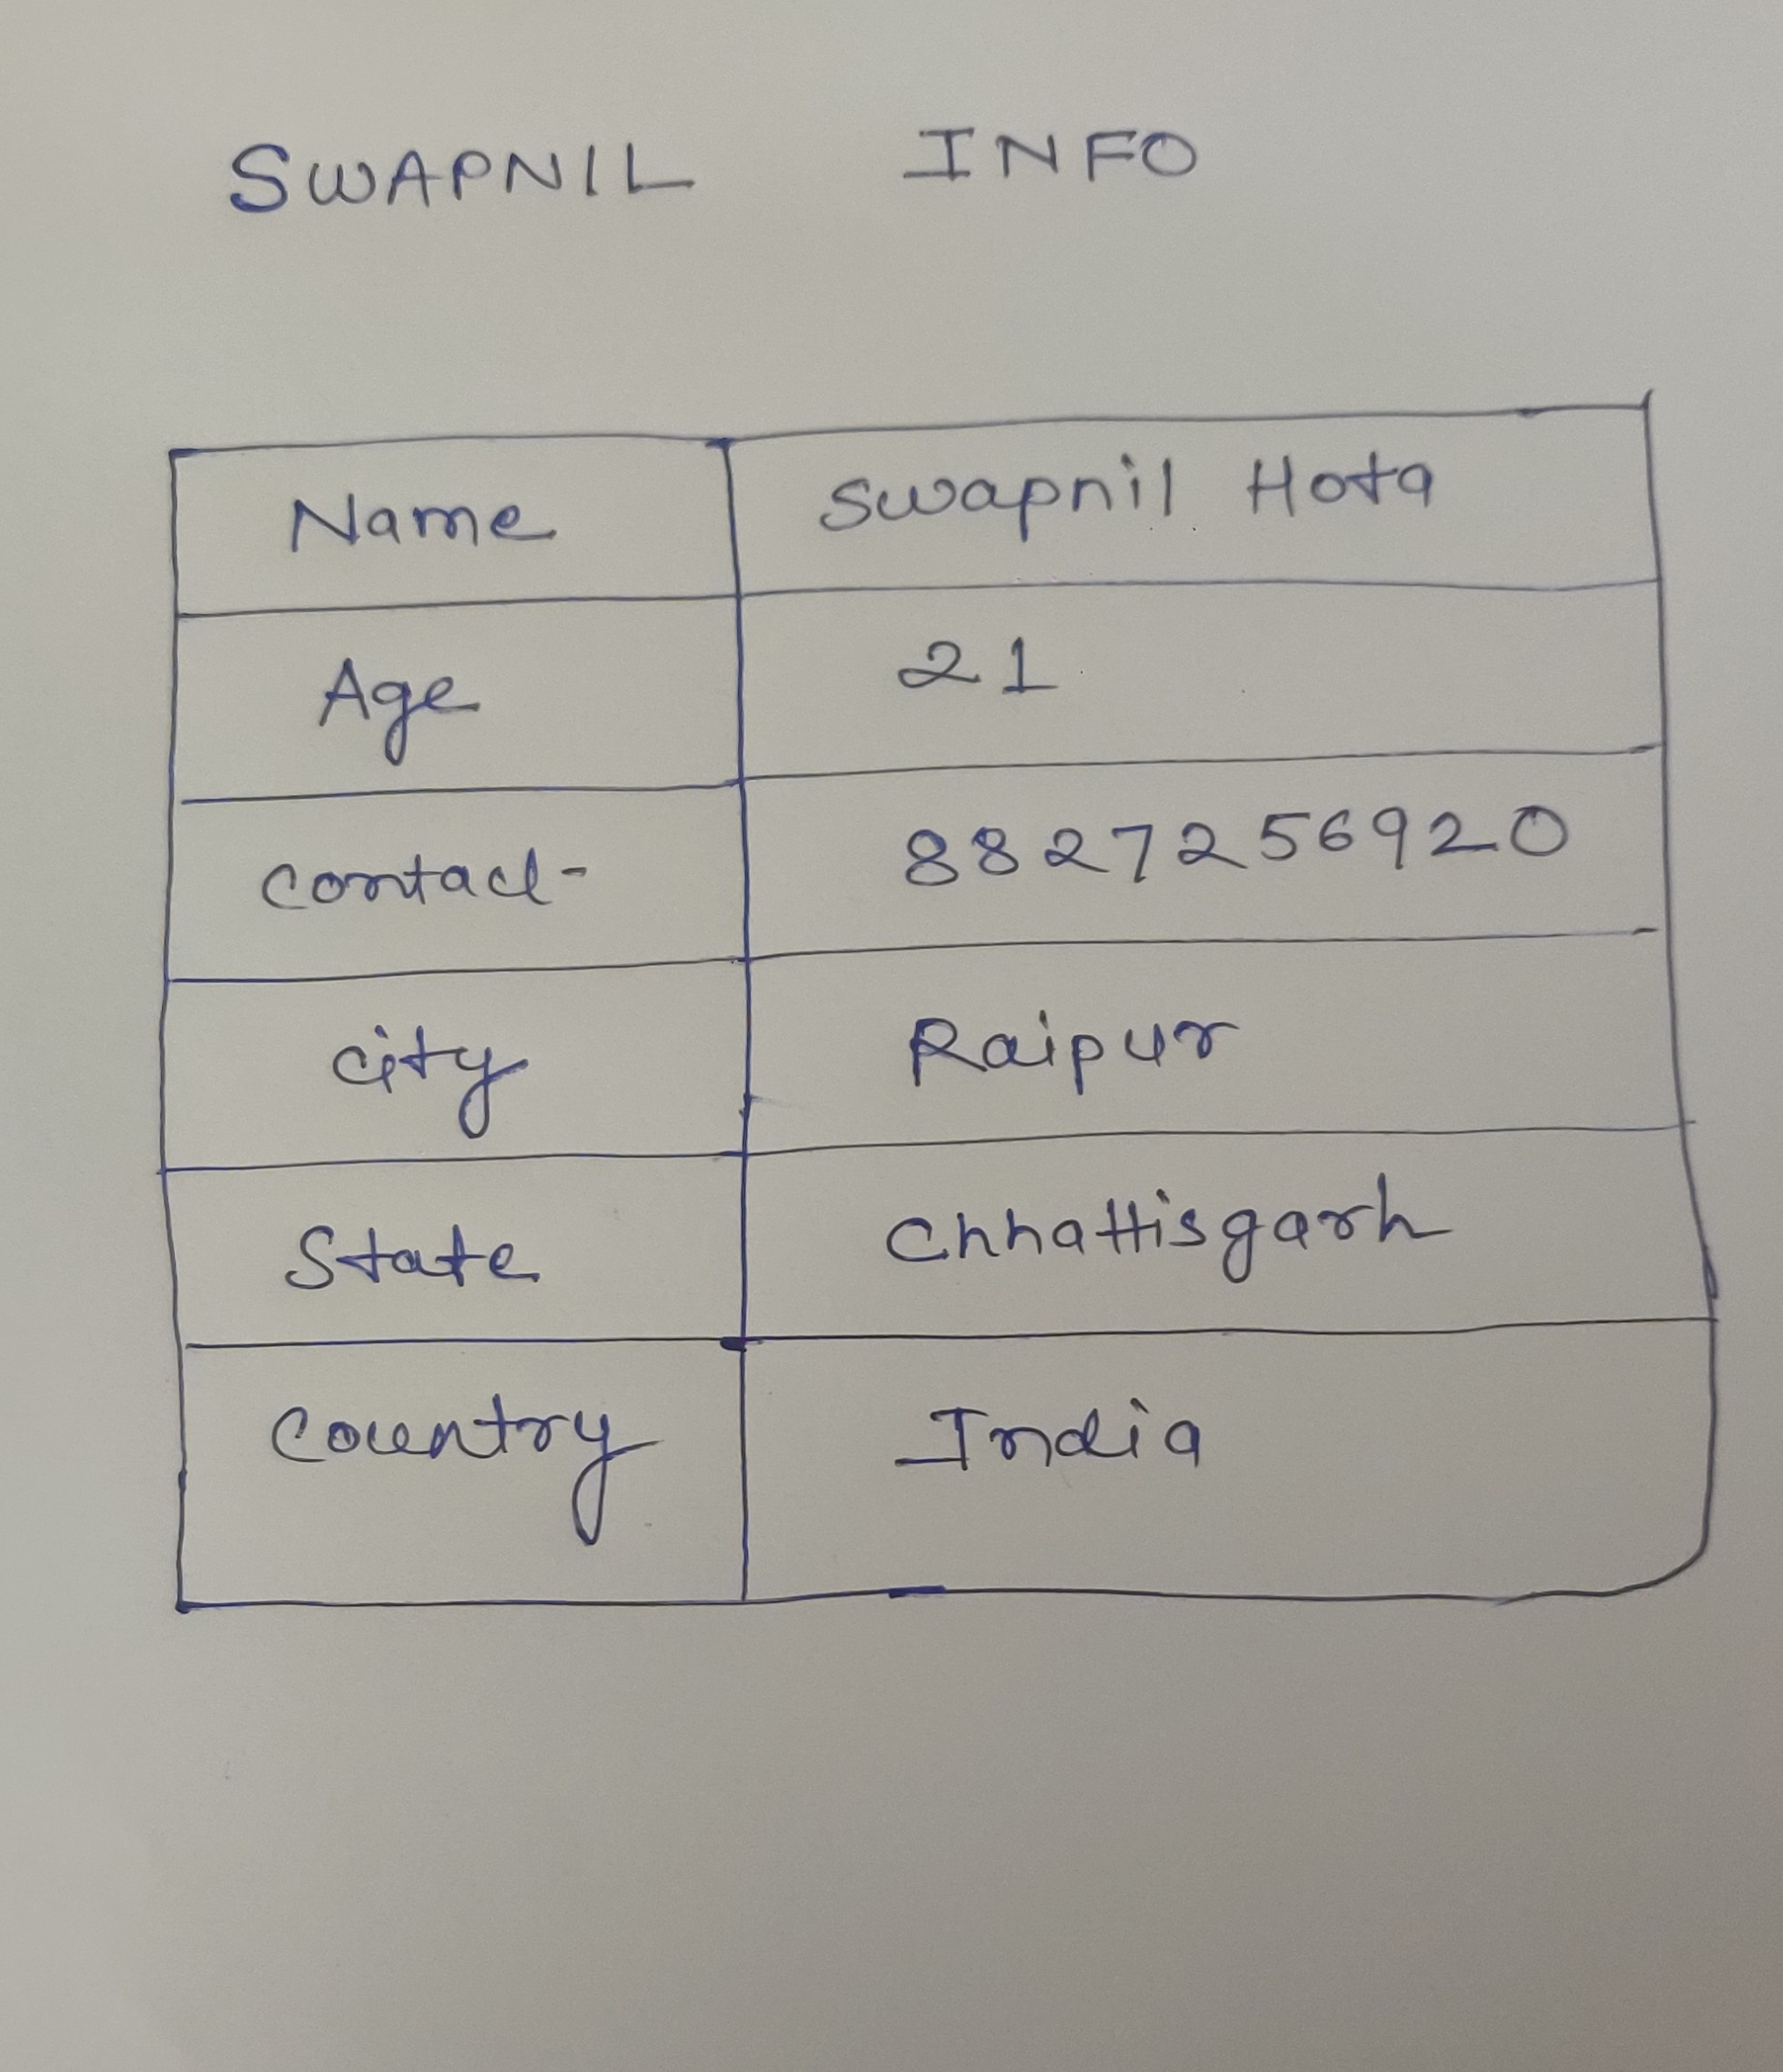 SWAPNIL INFO
Name Swapnil Hota
Age 21
Contact 8827256920
City Raipur
State Chhattisgarh
Country India